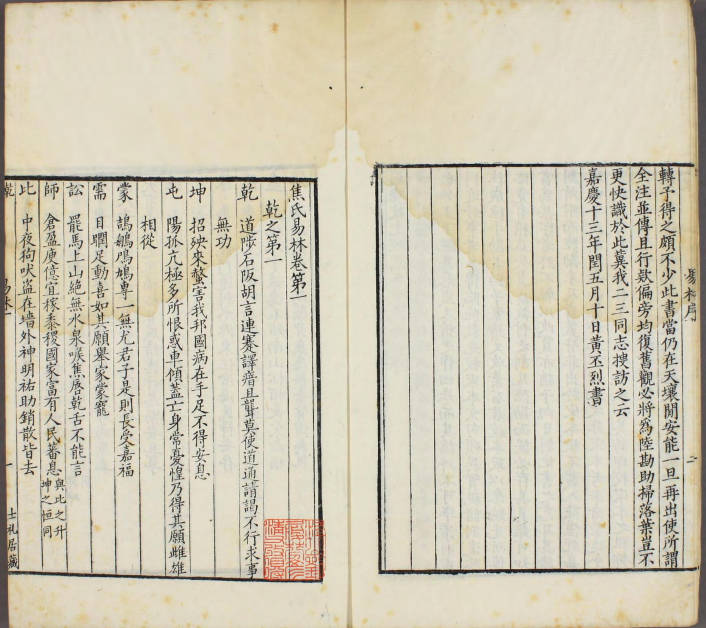 轉予得之頗不少此書當仍在天壤閒安能一旦再出使所謂
全注並傳且行欵偏旁均復舊觀必將爲陸勘助掃落葉豈不
更快識於此冀我二三同志搜訪之云
嘉慶十三年閏五月十日黃丕烈書
焦氏易林卷第一
乾之第一
乾 道陟石阪胡言連蹇譯瘖且聾莫使道通請謁不行求事
無功
坤 招殃來螫害我邦國病在手足不得安息
屯 陽孤亢極多所恨惑車傾蓋亡身常憂惶乃得其願雌雄
相從
蒙 鵠鵴鳲鳩專一無尤君子是則長受嘉福
需 目瞤足動喜如其願舉家蒙寵
訟 罷馬上山絶無水泉喉焦唇乾舌不能言
師 倉盈庾億宜稼黍稷國家富有人民蕃息與比之升坤之恒同
比 中夜狗吠盜在墻外神明祐助銷散皆去
乾 易林一 一 士礼居藏